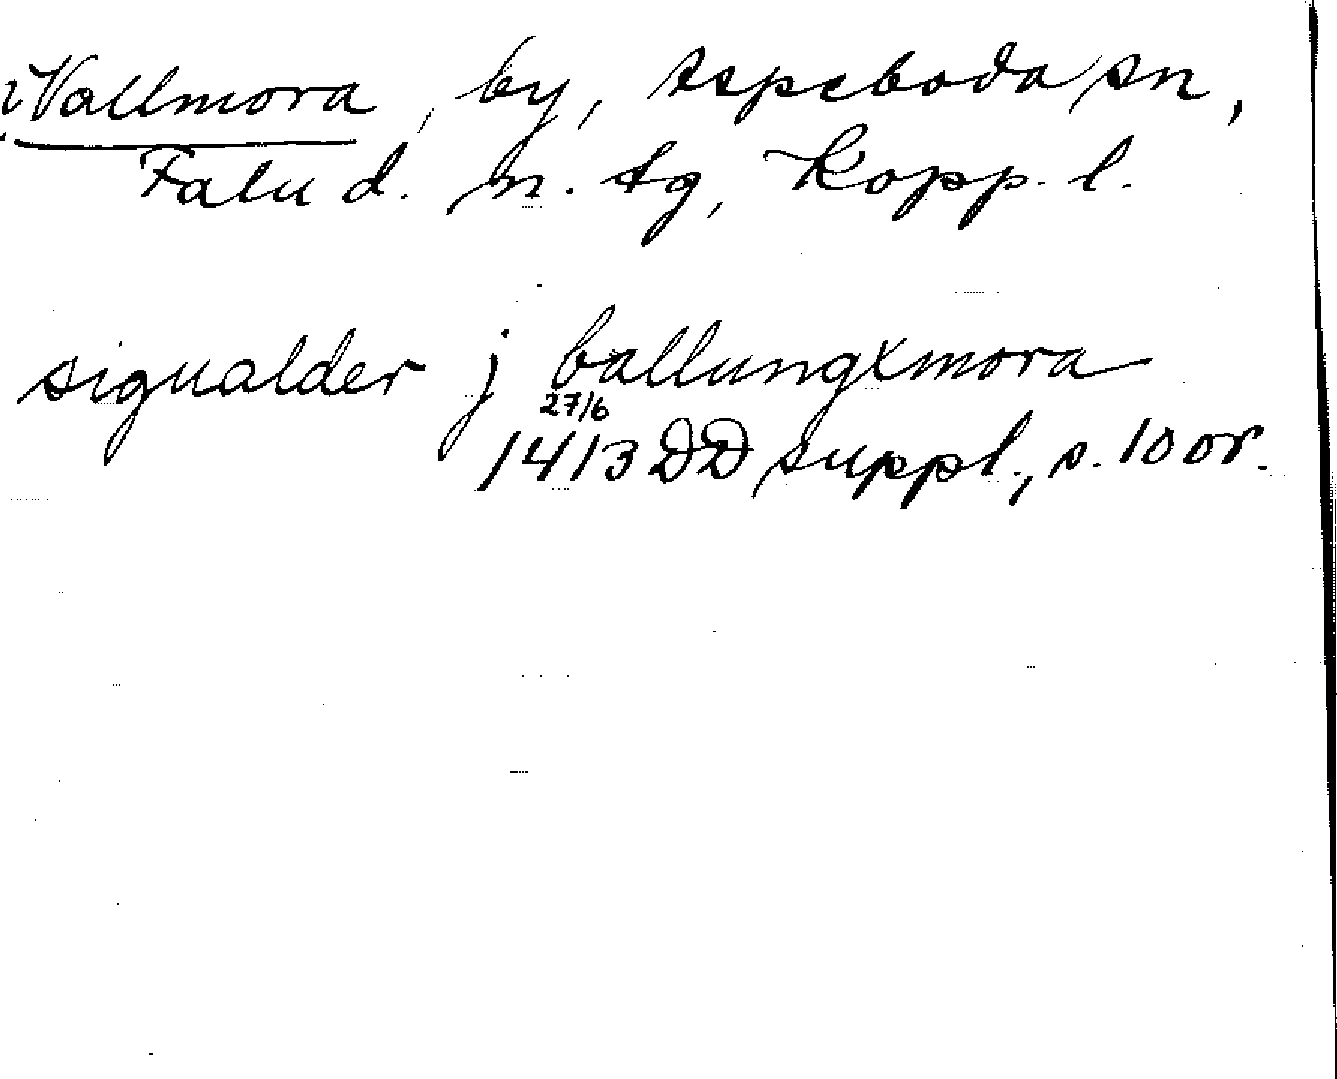 Vallmora, by, Aspeboda sn,
Falu d. n. tg, Kopp. l.
sigualder j ballungxmora
27/6
1413 DD suppl., s. 10 or.